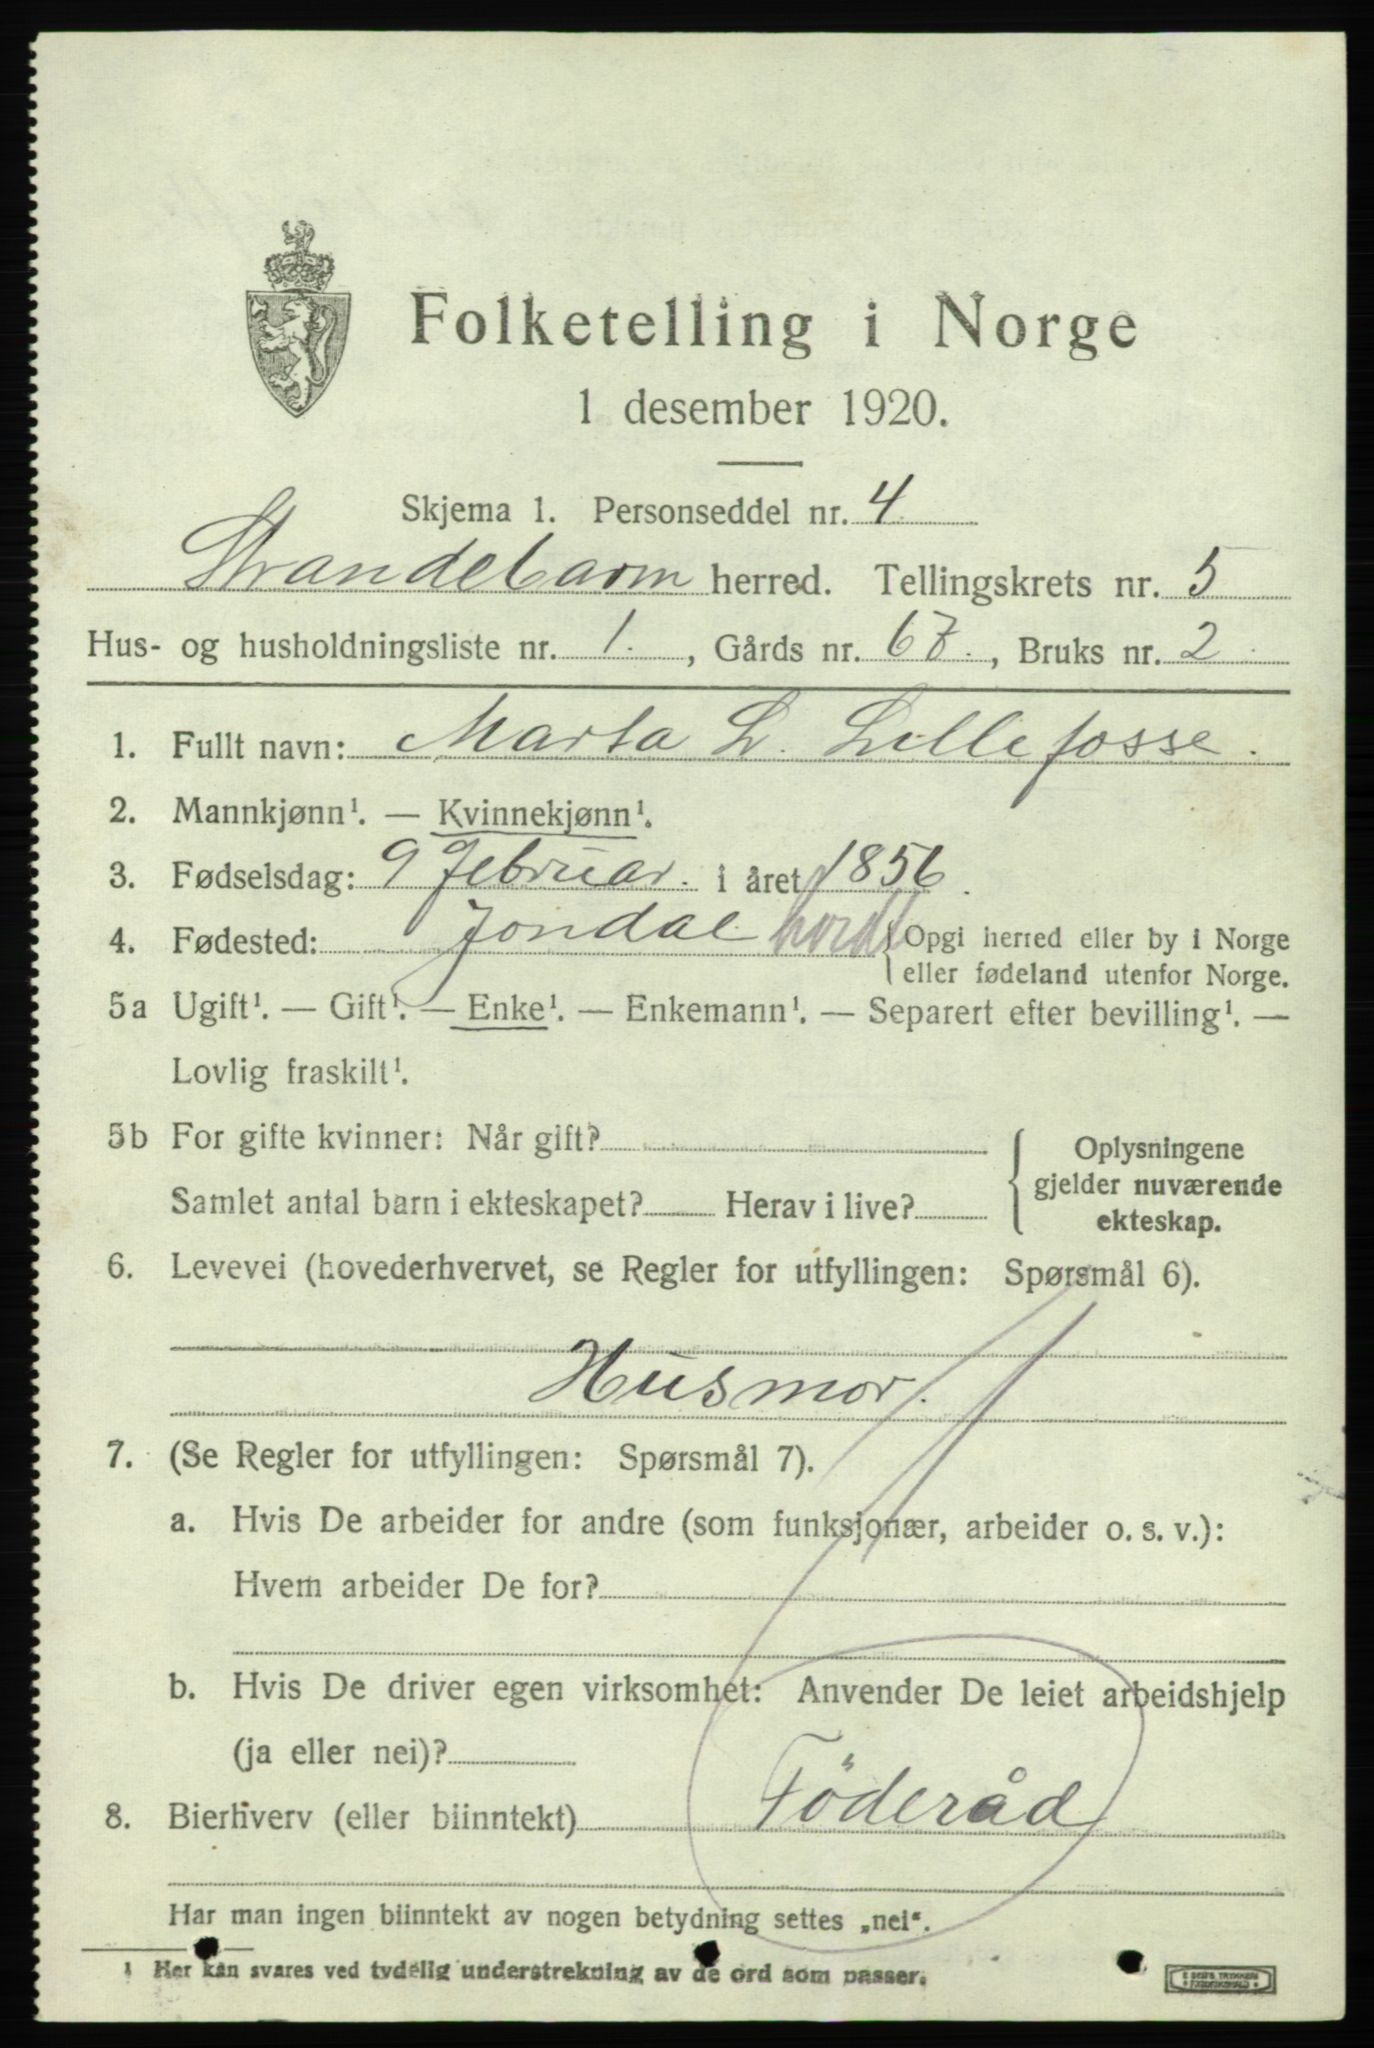 Folketelling i Norge
1 desember 1920.
Skjema 1. Personseddel nr. 4
Strandebarm herred. Tellingskrets nr. 5
Hus- og husholdningsliste nr. 1. , Gårds nr. 67. , Bruks nr. 2.
1. Fullt navn: Marta L. Lillefosse.
2. Mannkjønn¹. — Kvinnekjønn¹.
3. Fødselsdag: 9 Februar. i året 1856.
4. Fødested: Jondal hordl { Opgi herred eller by i Norge
eller fødeland utenfor Norge.
5a Ugift¹. — Gift¹. — Enke¹. — Enkemann¹. — Separert efter bevilling¹. —
Lovlig fraskilt¹.
5b For gifte kvinner: Når gift?
Samlet antal barn i ekteskapet? Herav i live?
Oplysningene
gjelder nuværende
ekteskap.
6. Levevei (hovederhvervet, se Regler for utfyllingen: Spørsmål 6).
Husmor.
7. (Se Regler for utfyllingen: Spørsmål 7).
a. Hvis De arbeider for andre (som funksjonær, arbeider o. s. v.):
Hvem arbeider De for?
b. Hvis De driver egen virksomhet: Anvender De leiet arbeidshjelp
(ja eller nei)?
8. Bierhverv (eller biinntekt) Föderåd
Har man ingen biinntekt av nogen betydning settes „nei“.
¹ Her kan svares ved tydelig understrekning av de ord som passer.